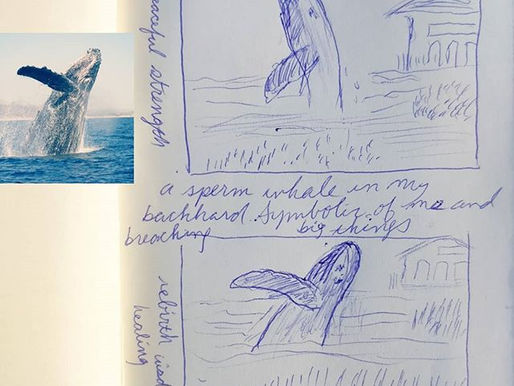 peaceful strength
a sperm whale in my
backyard. Symbolic of me and
breaching big things
rebirth
healing